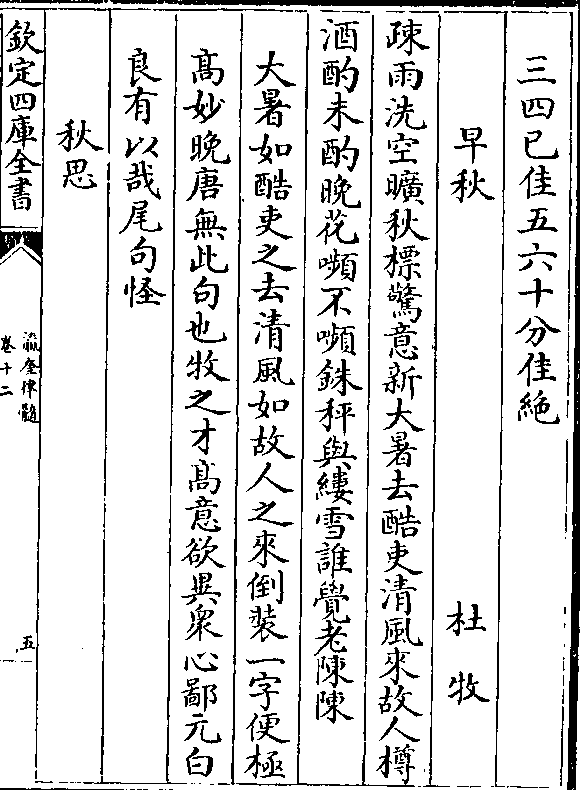 三四已佳五六十分佳絶
早秋 杜牧
疎雨洗空曠秋標驚意新大暑去酷吏清風來故人樽
酒酌未酌晚花嚬不嚬銖秤與縷雪誰覺老陳陳
大暑如酷吏之去清風如故人之來倒装一字便極
髙妙晚唐無此句也牧之才髙意欲異衆心鄙元白
良有以哉尾句怪
秋思
欽定四庫全書
瀛奎律髓
卷十二
五